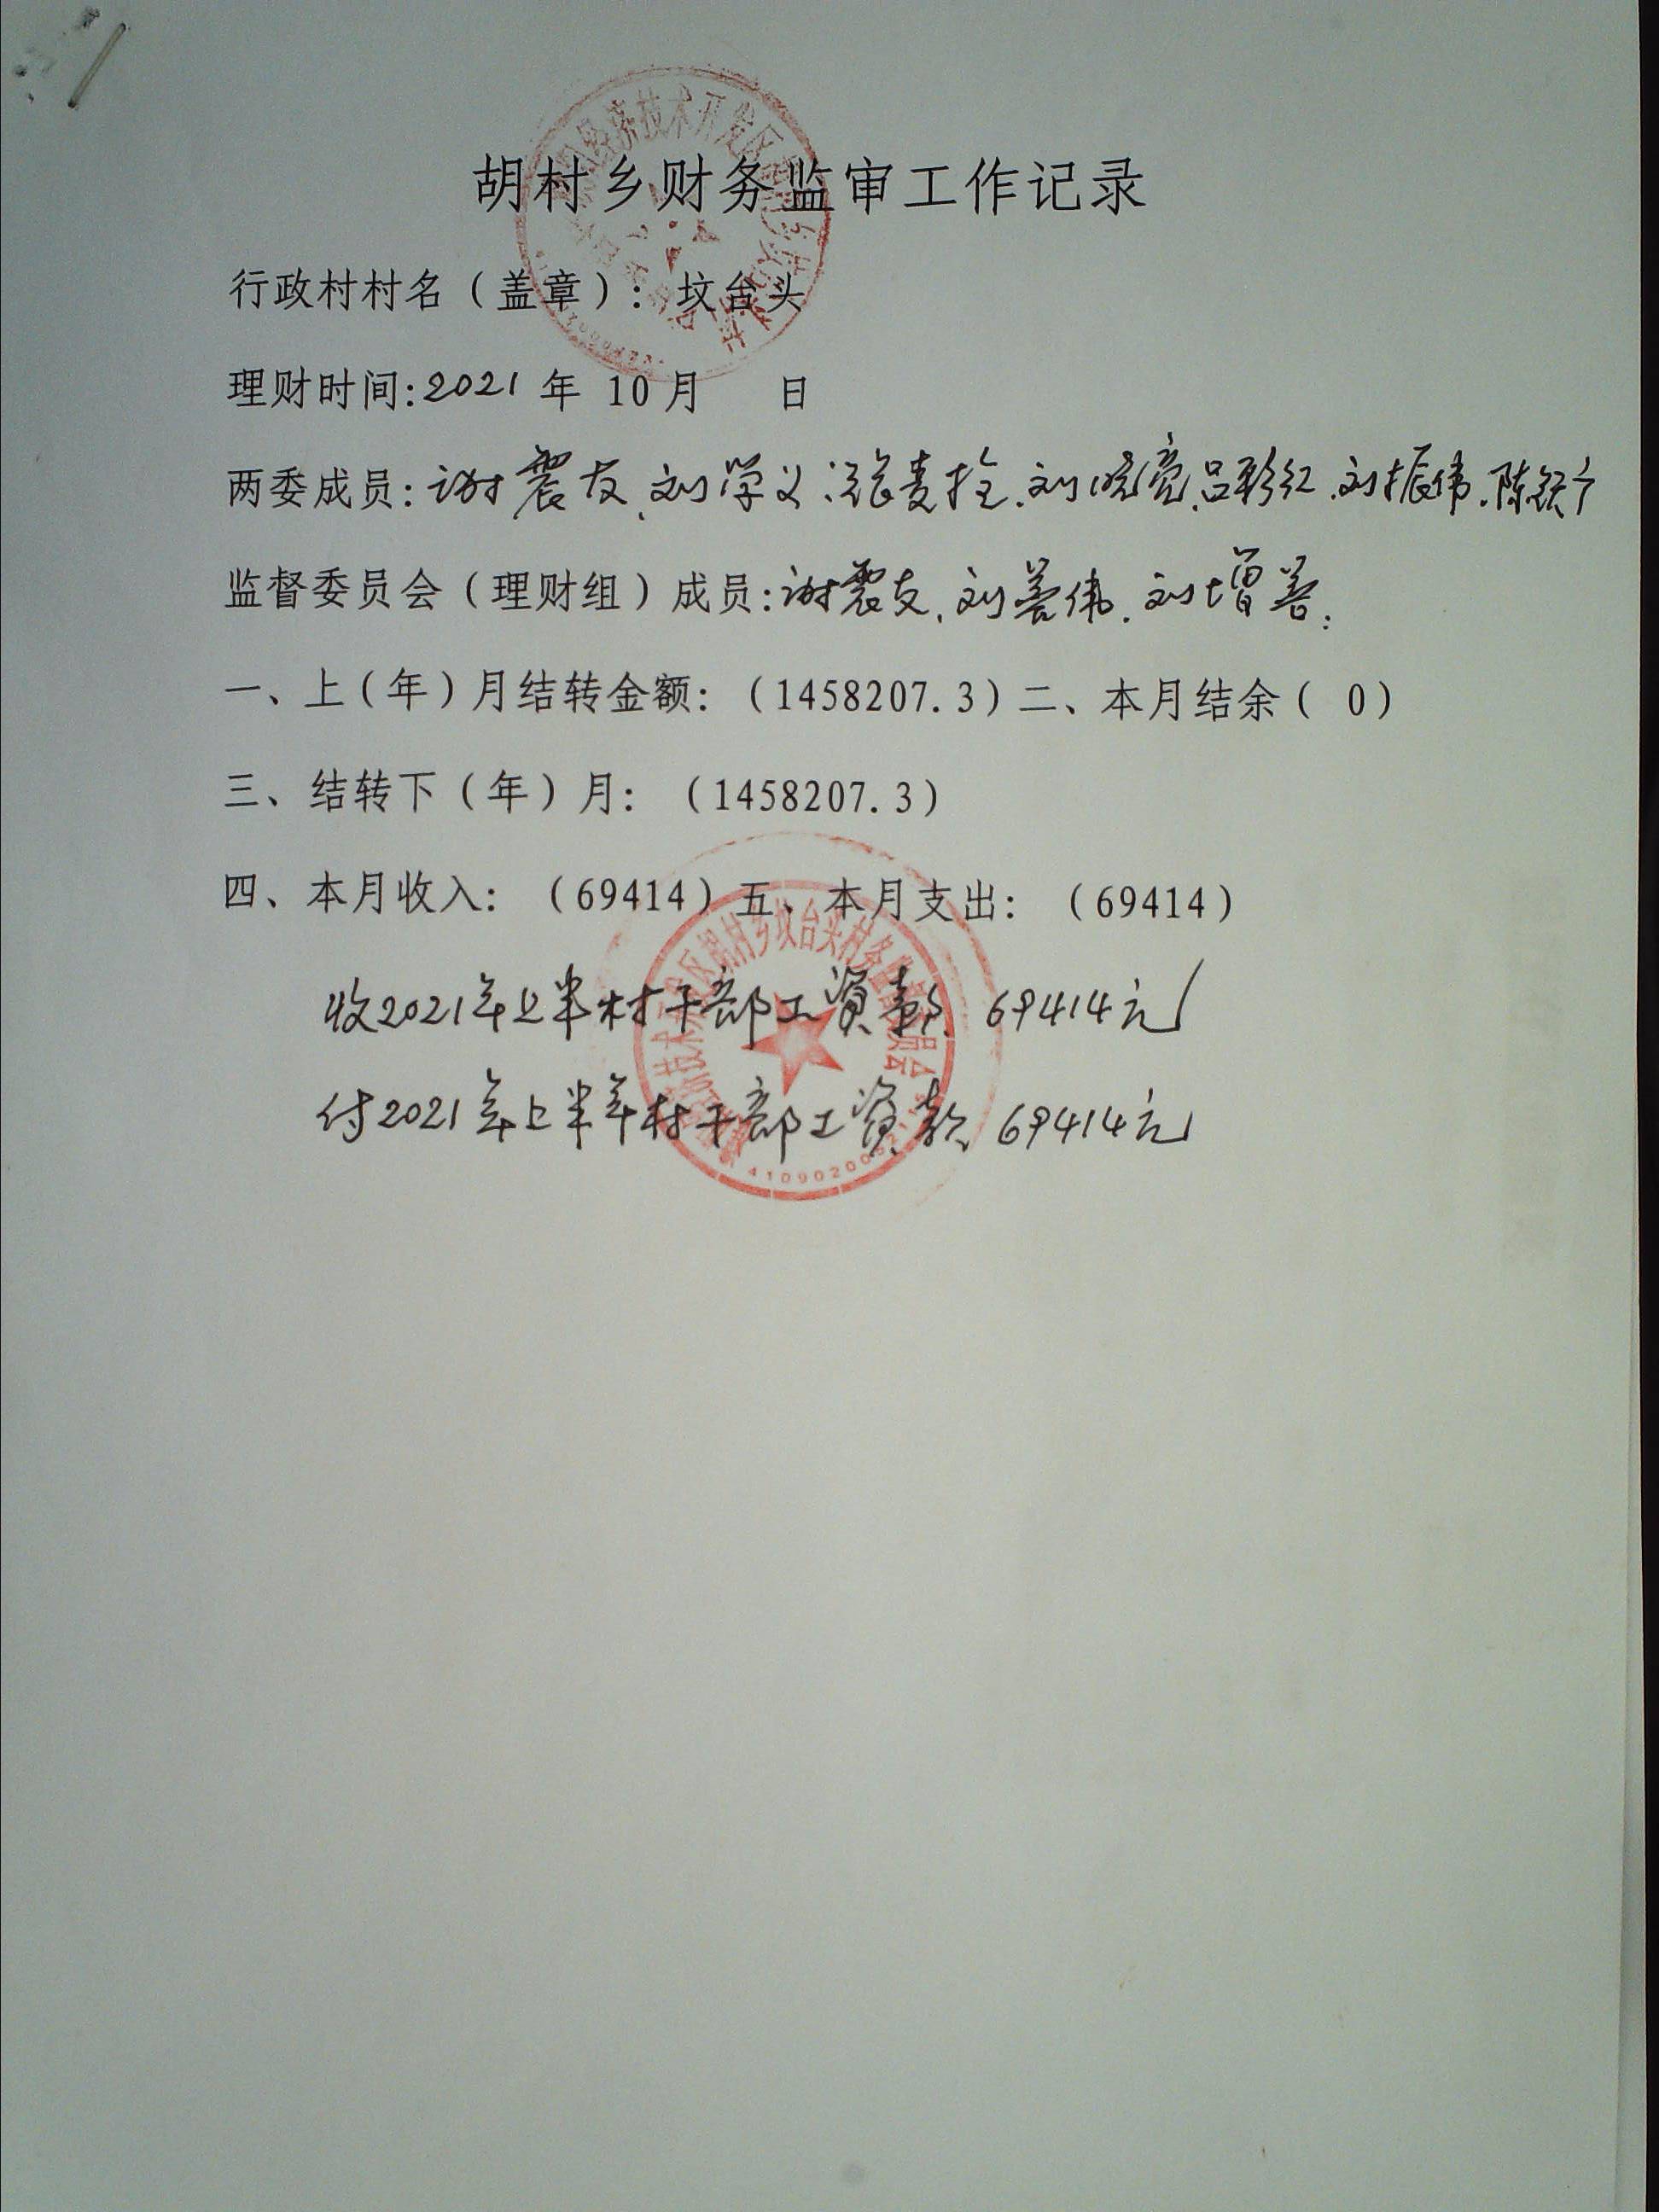 胡村乡财务监审工作记录
行政村村名（盖章）：坟台头
理财时间:2021 年 10月 日
两委成员:谢震友、刘学义、张麦拴、刘晓亮、吕彩红、刘振伟、陈
监督委员会（理财组）成员:谢震友、刘善伟、刘增善
一、上（年）月结转金额：（1458207.3）二、本月结余（ 0）
三、结转下（年）月：（1458207.3）
四、本月收入：（69414）五、本月支出：（69414）
收2021年上半村干部工资款 69414元
付2021年上半年村干部工资款 69414元
经济技术开发区
技术开发区胡村乡坟台头村务监督委员会
4109020